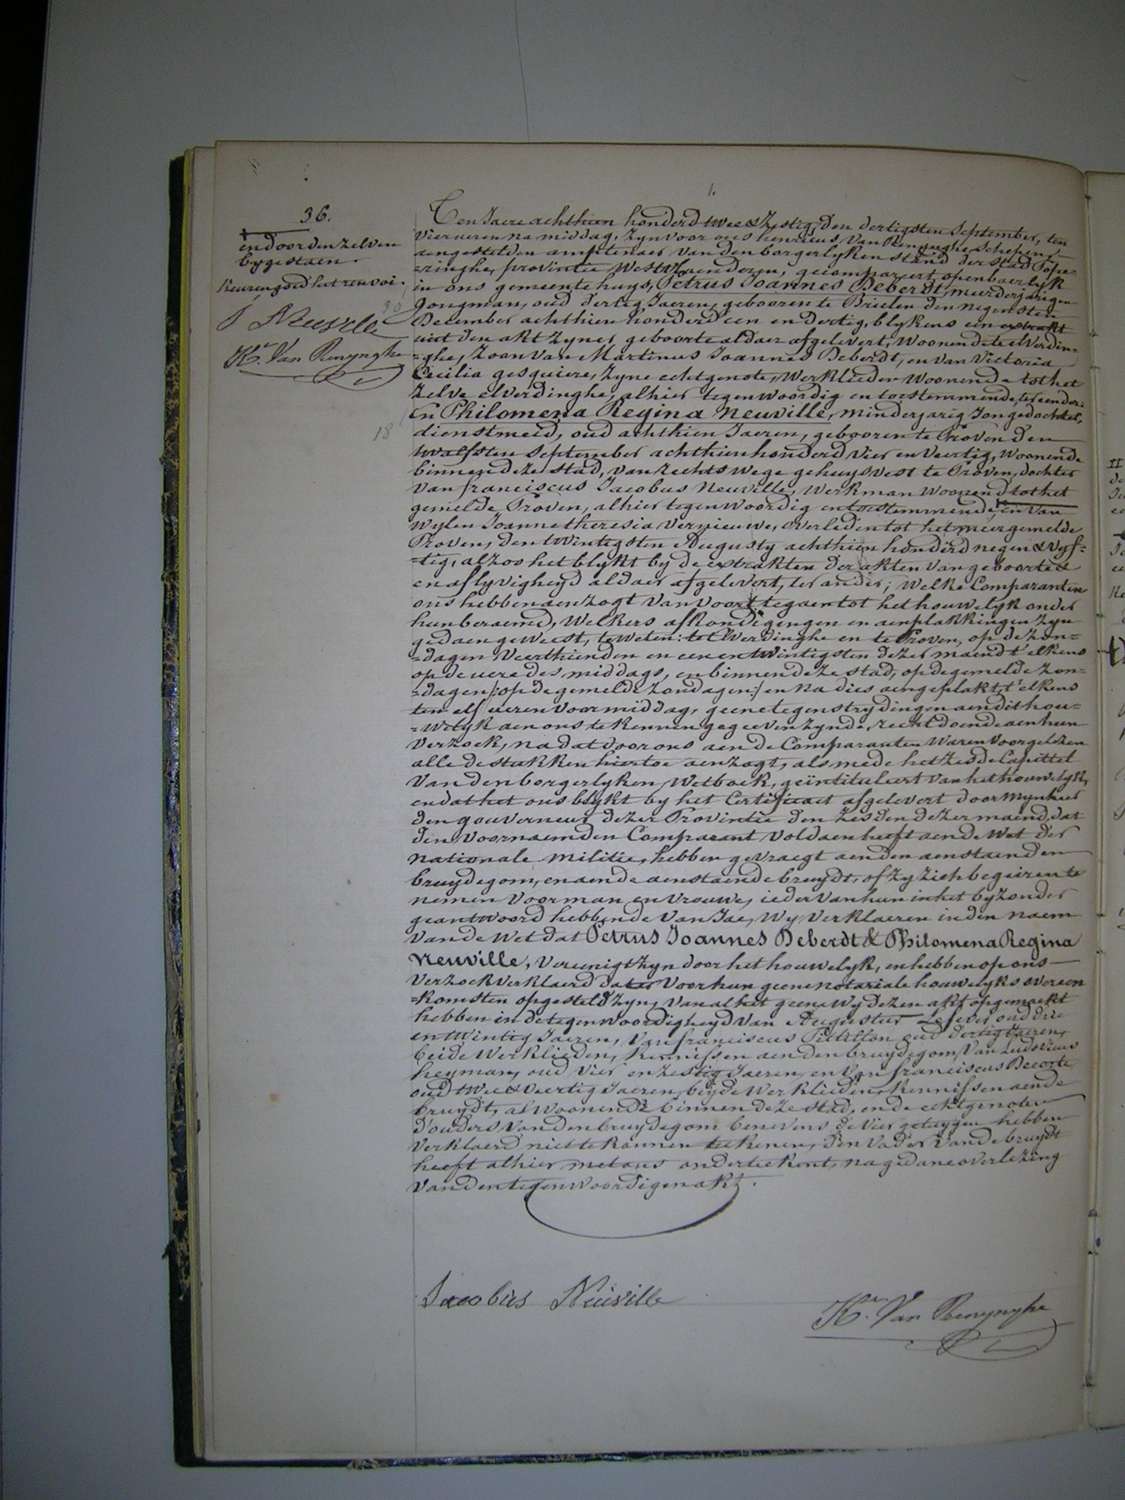 36.
en door den zelven
bygestaen.
Keurengoed het renvoi.
J Neuville
Hri Van Renynghe
30
18
Ten Jaere achthien honderd twee & Zestig, den dertigsten September, ten
vier uren na middag, zyn voor ons henricus Van Renynghe, Schepene
aengestelden amptenaer van den borgerlyken Stand der Stad Pope-
=ringhe, provintie Westvlaenderen, gecompareert openbaerlyk
in ons gemeente huys, Petrus Joannes Deberdt, meerderjarigen
Jongman, oud dertig Jaeren, gebooren te Brielen den negensten
December achthien honderd een en dertig, blykens een extrakt
uit den akt zyner geboorte aldaer afgelevert, Woonende te Elverdin-
=ghe, Zoon van Martinus Joannes Deberdt, en van Victoria
Cecilia gesquiere, zyne echtgenote, Werklieden Woonende tot het
zelve elverdinghe, alhier tegenwoordig en toestemmende, ter eender;
En Philomena Regina Neuville, minderjarig Jongedochter,
dienstmeid, oud achthien Jaeren, gebooren te Proven den
twalfsten September achthien honderd vier en veertig, Woonende
binnen deze stad, van rechts wege gehuysvest te Proven, dochter
van franciscus Jacobus Neuville, Werkman Woonend tot het
gemelde Proven, alhier tegenwoordig en toestemmende, en van
Wylen Joanna theresia Vernieuwe, overleden tot het meergemelde
Proven, den twintigsten Augusty achthien honderd negen & vyf-
=tig, alzoo het blykt by de extrakten der akten van geboorte &
en aflyvigheyd aldaer afgelevert, ter ander; Welke Comparanten
ons hebben aenzogt van voort tegaen tot het houwelyk onder
hun beraemd, Welkers afkondigingen en aenplakkingen zyn
gedaen geweest, te weten: tot Elverdinghe en te Proven, op de zon-
=dagen veerthienden en een en twintigsten dezer maend t'elkens
op de uere des middags, en binnen deze stad, op de gemelde zon-
=dagen /: op de gemelde zondagen :/ en na dies aengeplakt, t'elkens
ten elf ueren voormiddag, geene tegenstrydingen aen dit hou-
=welyk aen ons te kennen gegeeven zynde, recht doende aen hun
verzoek, na dat voor ons aen de Comparanten Waren voorgelezen
alle de stukken hiertoe aenzogt, als mede het zesde Capittel
van den borgerlyken Wetboek, geintituleert van het houwelyk,
en dat het ons blykt by het Certificaet afgelevert door mynheer
den gouverneur dezer Provintie den zesden dezer maend, dat
den voornaemden Comparant voldaen heeft aen de Wet der
nationale militie, hebben gevraegt aen den aenstaenden
bruydegom, en aen de aenstaende bruydt, of zy zich begeiren te
nemen voor man en vrouwe, ieder van hun in het byzonder
geantwoord hebbende van Jae, Wy verklaeren in den naem
van de Wet dat Petrus Joannes Deberdt & Philomena Regina
Neuville, vereenigt zyn door het houwelyk, en hebben op ons
verzoek verklaerd dat er voor hun geene notariale houwelyks overeen
=komsten opgesteld zyn, van al het geene Wy dezen akt opgemaekt
hebben in de tegenwoordigheyd van Augustus Lefever oud drie
en twintig Jaeren, van franciscus oud dertig Jaeren,
beide Werklieden, Kennissen aen den bruydegom, van Ludovicus
heyman, oud vier en zestig Jaeren, en van franciscus Decorte
oud twee & veertig Jaeren, beyde Werklieden, Kennissen aen de
bruydt, al woonende binnen deze stad, en de echtgenoten
d'ouders van den bruydegom benevens de vier getuygen hebben
verklaerd niet te konnen teekenen, den vader van de bruydt
heeft alhier met ons onderteekent, na gedane overlezing
van den tegenwoordigen akt.
Jacobus Neuville
Hri Van Renynghe